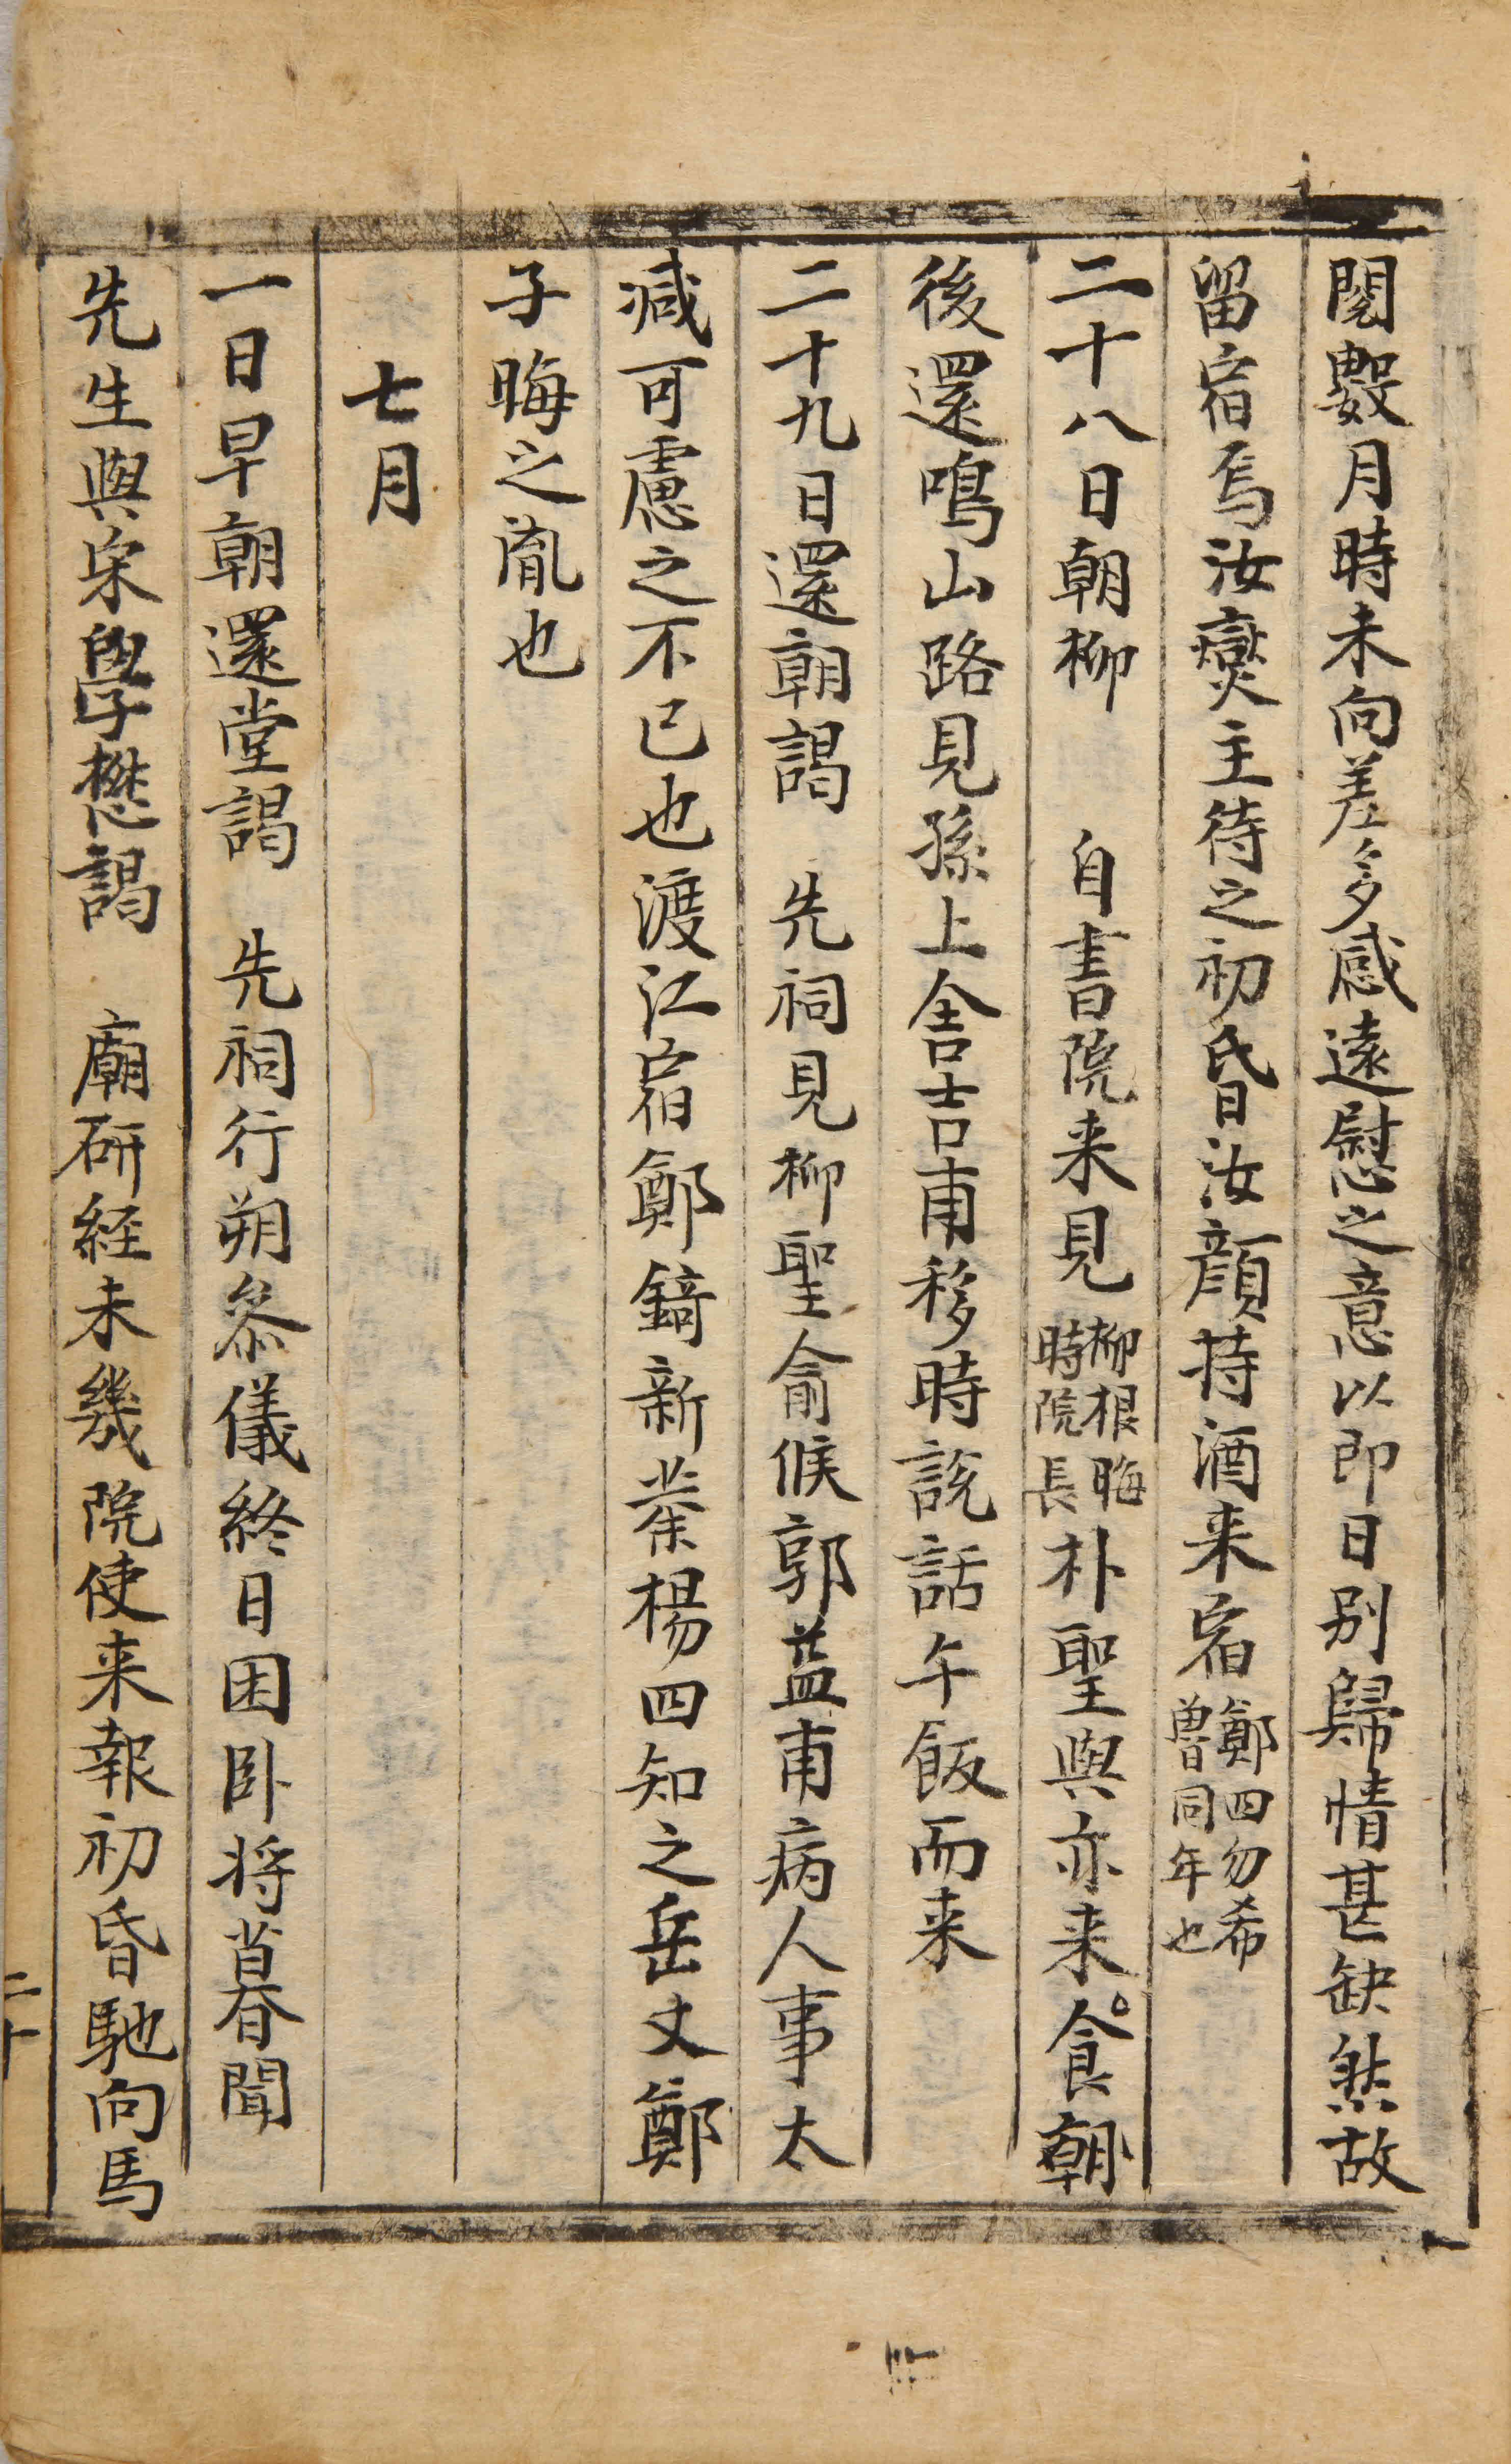 閱數月時未向差多感遠慰之意以即日別歸情甚缺然故
留宿焉汝燮主待之初昏汝顔持酒来宿鄭四勿希曽同年也
二十八日朝柳 自書院来見柳根晦時院長朴聖與亦来食朝
後還鳴山路見孫上舍吉甫移時說話午飯而来
二十九日還朝謁 先祠見柳聖兪候郭益甫病人事太
减可慮之不已也渡江宿鄭錡新業楊四知之岳丈鄭
子晦之胤也
七月
一日早朝還堂謁 先祠行朔叅儀終日困卧将暮聞
先生與宋學懋謁 廟研経未幾院使来報初昏馳向馬
二十